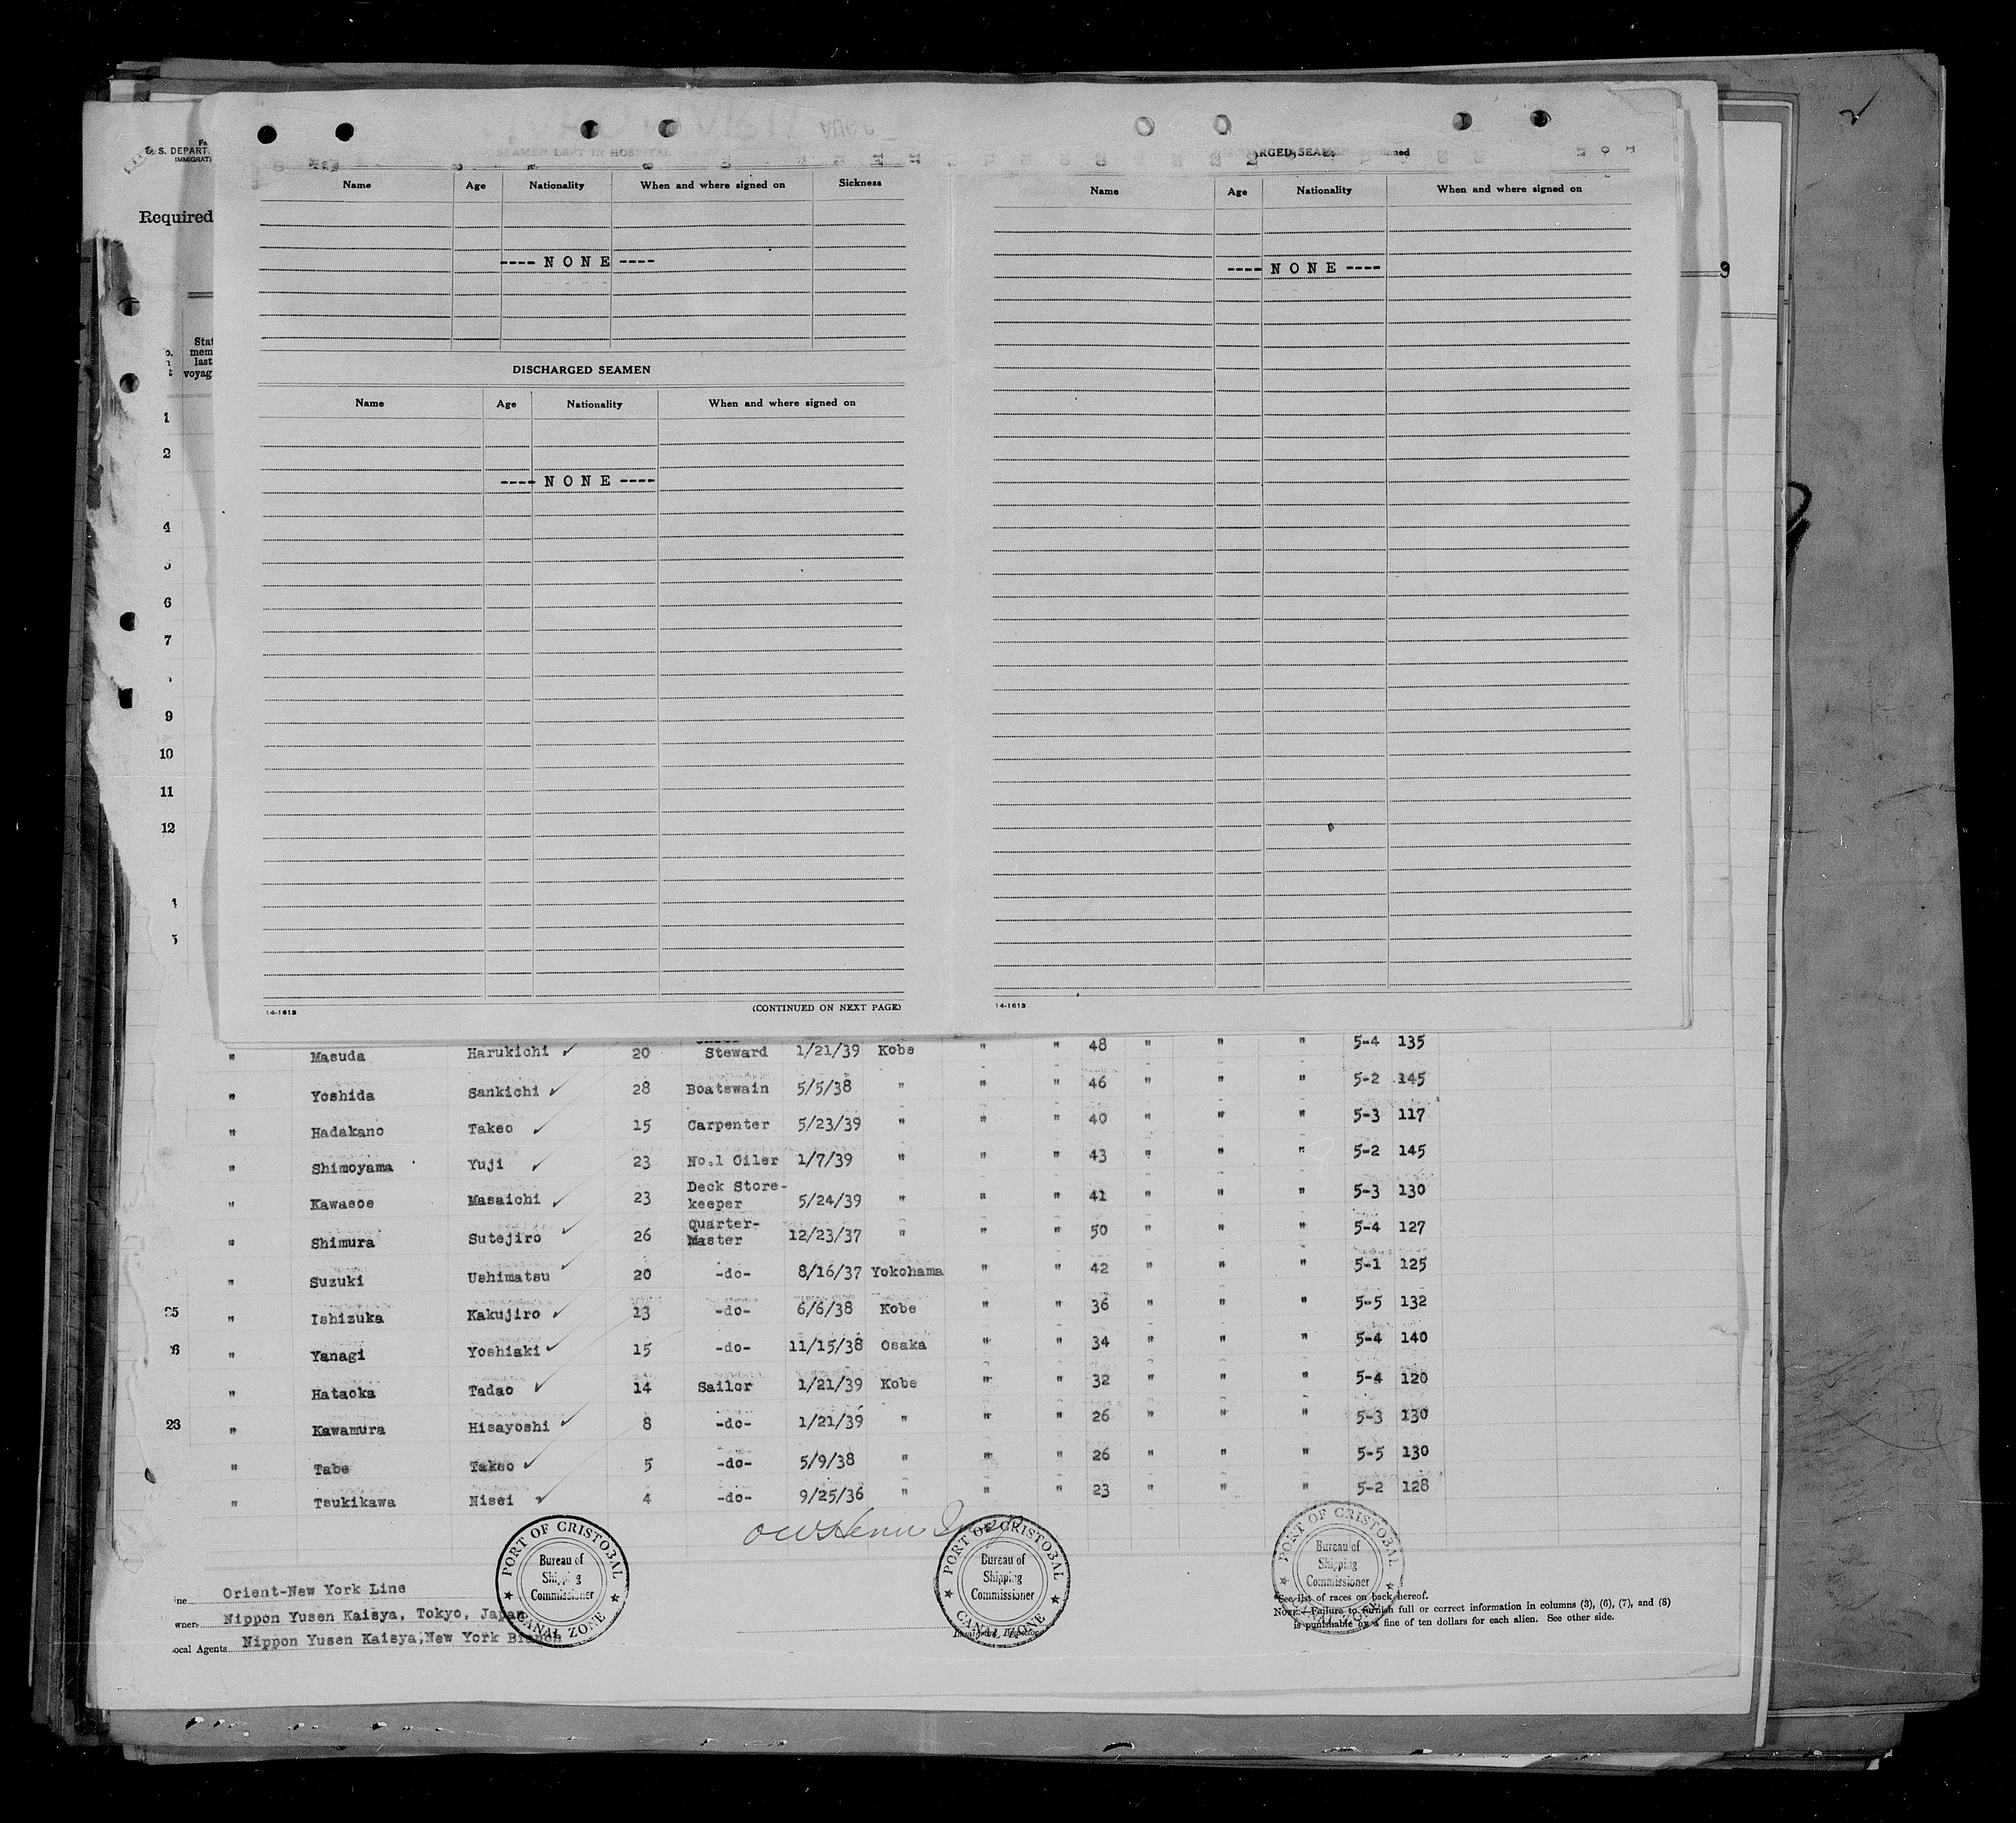 U. S. DEPART
IMMIGRATI
Required
Stat
mem
last
voyag
SEAMEN LEFT IN HOSPITAL
Name Age Nationality When and where signed on Sickness
---- N O N E ----
DISCHARGED SEAMEN
Name Age Nationality When and where signed on
---- N O N E ----
14-1613 (CONTINUED ON NEXT PAGE)
Name Age Nationality When and where signed on
---- N O N E ----
14-1613
9
1
2
4
6
7
9
10
11
12
" Masuda Harukichi ✓ 20 Steward 1/21/39 Kobe " " 48 " " " 5-4 135
" Yoshida Sankichi ✓ 28 Boatswain 5/5/38 " " " 46 " " " 5-2 145
" Hadakano Takeo ✓ 15 Carpenter 5/23/39 " " " 40 " " " 5-3 117
" Shimoyama Yuji ✓ 23 No.1 Oiler 1/7/39 " " " 43 " " " 5-2 145
" Kawasoe Masaichi ✓ 23 Deck Store-
keeper 5/24/39 " " " 41 " " " 5-3 130
" Shimura Sutejiro ✓ 26 Quarter-
Master 12/23/37 " " " 50 " " " 5-4 127
" Suzuki Ushimatsu ✓ 20 -do- 8/16/37 Yokohama " " 42 " " " 5-1 125
" Ishizuka Kakujiro ✓ 13 -do- 6/6/38 Kobe " " 36 " " " 5-5 132
" Yanagi Yoshiaki ✓ 15 -do- 11/15/38 Osaka " " 34 " " " 5-4 140
" Hataoka Tadao ✓ 14 Sailor 1/21/39 Kobe " " 32 " " " 5-4 120
28 " Kawamura Hisayoshi ✓ 8 -do- 1/21/39 " " " 26 " " " 5-3 130
" Tabe Takeo ✓ 5 -do- 5/9/38 " " " 26 " " " 5-5 130
" Tsukikawa Nisei ✓ 4 -do- 9/25/36 " " " 23 " " " 5-2 128
PORT OF CRISTOBAL
Bureau of
Shipping
Commissioner
CANAL ZONE
PORT OF CRISTOBAL
Bureau of
Shipping
Commissioner
CANAL ZONE
PORT OF CRISTOBAL
Bureau of
Shipping
Commissioner
CANAL ZONE
ne Orient-New York Line
wner Nippon Yusen Kaisya, Tokyo, Japan
ocal Agents Nippon Yusen Kaisya,New York Branch
Immigrant Inspector
*See list of races on back hereof.
NOTE.—Failure to furnish full or correct information in columns (3), (6), (7), and (8)
is punishable by a fine of ten dollars for each alien. See other side.